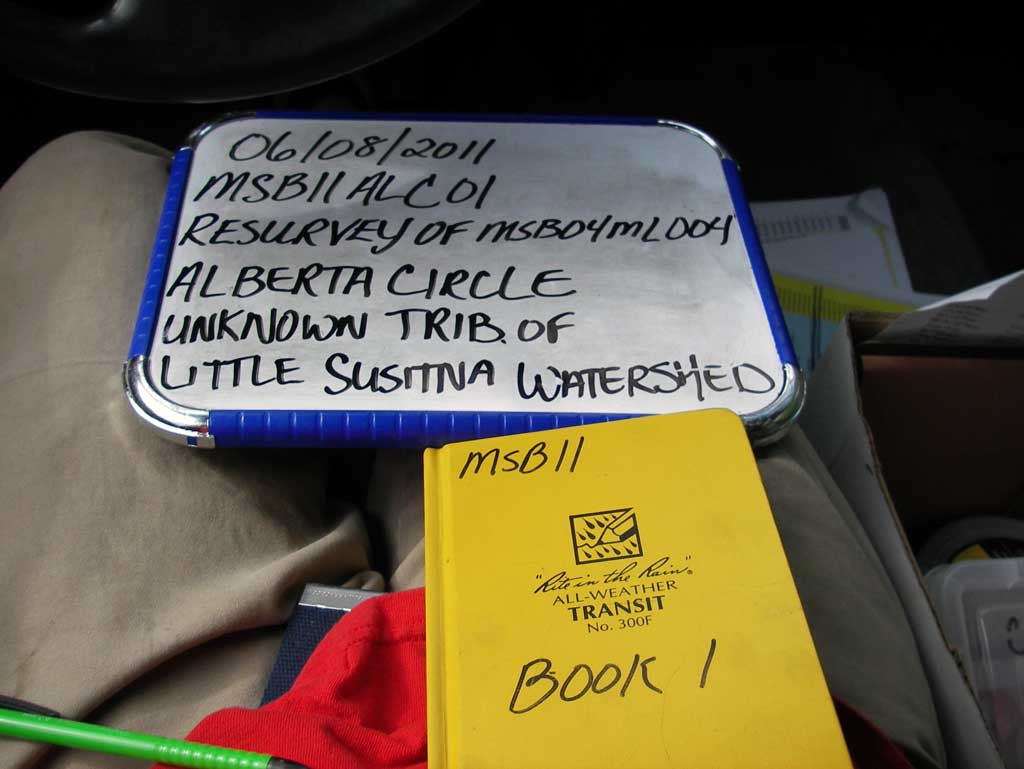 06/08/2011
MSB11ALC01
RESURVEY OF MSB04ML004
ALBERTA CIRCLE
UNKNOWN TRIB. OF
LITTLE SUSITNA WATERSHED
MSB11
"Rite in the Rain"®
ALL-WEATHER
TRANSIT
No. 300F
BOOK 1